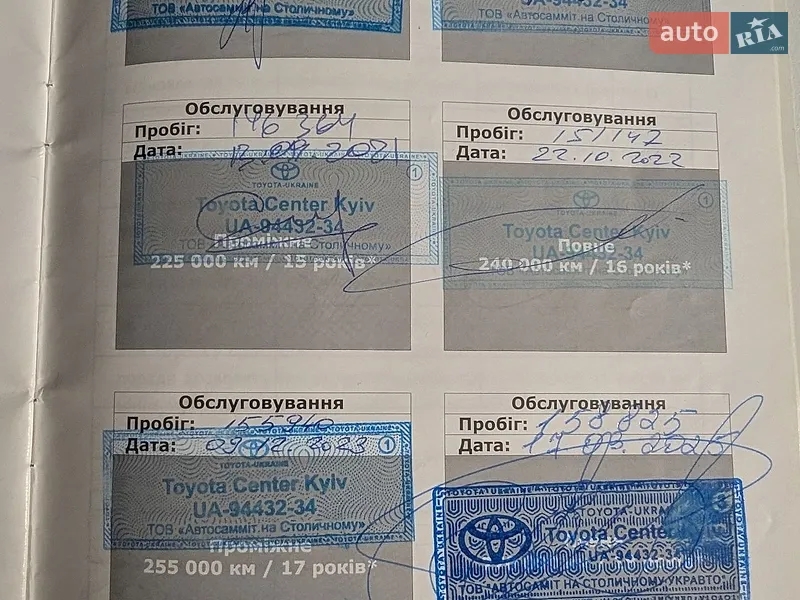 ТОВ «Автосамміт на Столичному»
UA-94432-34
auto RIA .com
Обслуговування
Пробіг: 146 364
Дата: 12.09.2021
TOYOTA-UKRAINE
1
Toyota Center Kyiv
UA-94432-34
Проміжне
ТОВ «Автосамміт на Столичному»
225 000 км / 15 років*
Обслуговування
Пробіг: 151147
Дата: 22.10.2022
TOYOTA-UKRAINE
1
Toyota Center Kyiv
UA-94432-34
Повне
240 000 км / 16 років*
Обслуговування
Пробіг: 155910
Дата: 09.12.2023
TOYOTA-UKRAINE
1
Toyota Center Kyiv
UA-94432-34
ТОВ «Автосамміт на Столичному»
Проміжне
255 000 км / 17 років*
Обслуговування
Пробіг: 158825
Дата: 17.03.2025
TOYOTA-UKRAINE
Toyota Center
UA-94432-34
ТОВ "АВТОСАМІТ НА СТОЛИЧНОМУ УКРАВТО"